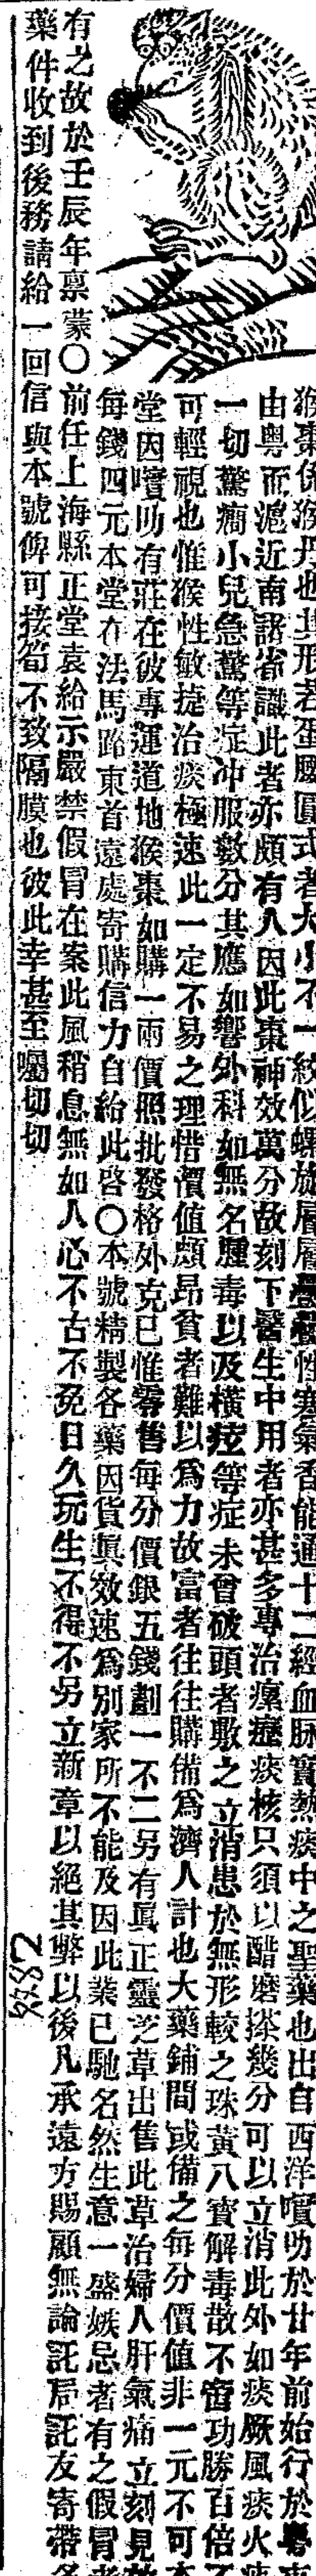 猴棗係猴丹也其形若蛋腰圓式者大小不一紋似螺旋層層疊疊性寒氣香能通十二經血脉實熱痰中之聖藥也出自西洋嘪叻於廿年前始行於粵東
由粵而滬近南諸省識此者亦頗有人因此棗神效萬分故刻下醫生中用者亦甚多專治瘰癧痰核只須以醋磨搽幾分可以立消此外如痰厥風痰火
一切驚癇小兒急驚等症冲服數分其應如響外科如無名腫毒以及橫痃等症未曾破頭者敷之立消患於無形較之珠黃八寶解毒散不啻功勝百倍不
可輕視也惟猴性敏捷治痰極速此一定不易之理惜價值頗昂貧者難以爲力故富者往往購備爲濟人計也大藥鋪間或備之每分價值非一元不可本
堂因嘪叻有莊在彼專運道地猴棗如購一兩價照批發格外克已惟零售每分價銀五錢劃一不二另有眞正靈芝草出售此草治婦人肝氣痛立刻見效
每錢四元本堂在法馬路東首遠處寄購信力自給此啓〇本號精製各藥因貨眞效速爲別家所不能及因此業已馳名然生意一盛嫉忌者有之假冒者
有之故於壬辰年禀蒙〇前任上海縣正堂袁給示嚴禁假冒在案此風稍息無如人心不古不免日久玩生不得不另立新章以絕其弊以後凡承遠方賜顧無論託局託友寄帶各
藥件收到後務請給一回信與本號俾可接筍不致隔膜也彼此幸甚至囑切切